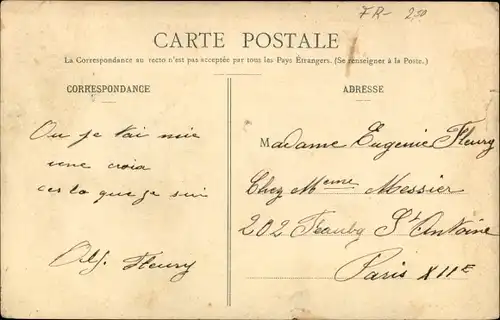 FR- 250
CARTE POSTALE
La Correspondance au recto n'est pas acceptée par tous les Pays Étrangers. (Se renseigner à la Poste.)
CORRESPONDANCE
Ou je t'ai mie
une croia
ces la que je sui
Alf. Fleury
ADRESSE
Madame Eugenie Fleury
Chez Mme Messier
202 Faubg St Antoine
Paris XIIE